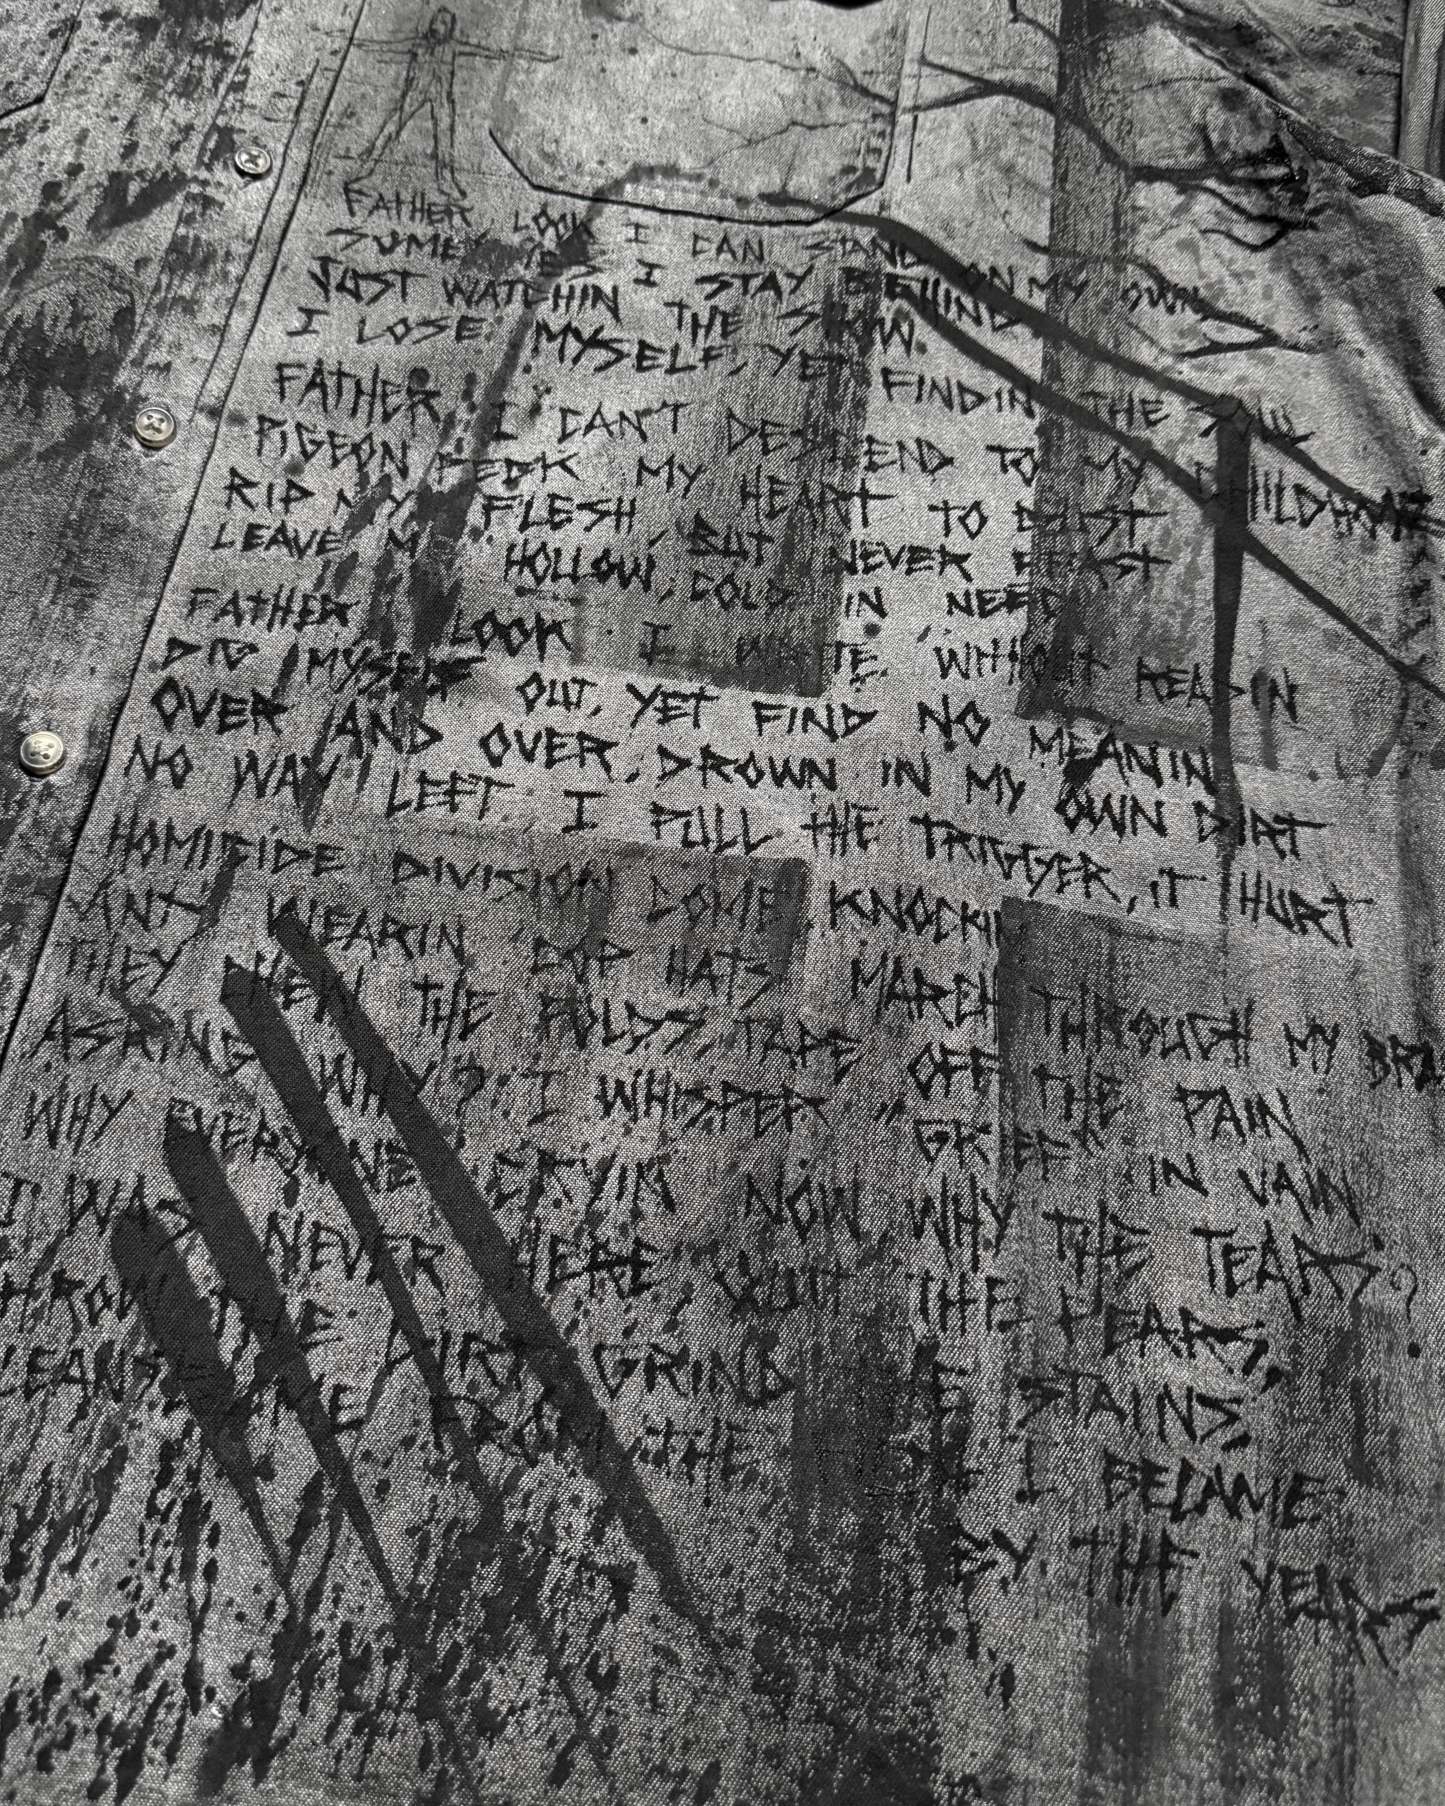 FATHER, LOOK I CAN STAND ON MY OWN
SOMETIMES I STAY BEHIND
JUST WATCHIN THE SHOW.
I LOSE MYSELF, YET FINDIN THE SOUL
FATHER, I CAN'T DESCEND TO MY
PIGEON PECK MY HEART TO DUST
RIP MY FLESH, BUT NEVER FEAST
LEAVE M HOLLOW, COLD IN NEED
FATHER LOOK I WRITE, WITHOUT READIN
DIG MYSELF OUT, YET FIND NO MEANIN
OVER AND OVER, DROWN IN MY OWN DIRT
NO WAY LEFT I PULL THE TRIGGER, IT HURT
HOMICIDE DIVISION COME KNOCKIN
ANT WEARIN COP HATS MARCH THROUGH MY BRA
THEY CHEW THE FOLDS, TAPE OFF THE PAIN
ASKING WHY? I WHISPER "GRIEF" IN VAIN
WHY EVERYONE CRYIN NOW, WHY THE TEARS?
I WAS NEVER HERE QUIT THE YEARS,
THROW THE DIRT, GRIND THE STAINS,
CLEANSE ME FROM THE I BECAME
BY THE YEARS